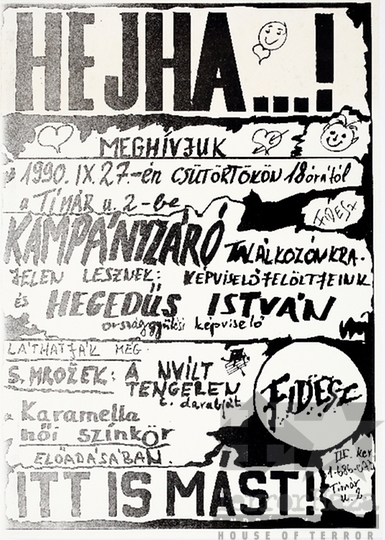 HEJHA...!
MEGHÍVJUK
1990. IX. 27.-én CSÜTÖRTÖKÖN 18 órától
a TÍMÁR u. 2-be
FIDESZ
KAMPÁNYZÁRÓ TALÁLKOZÓNKRA.
JELEN LESZNEK: KÉPVISELŐJELÖLTJEINK
és HEGEDŰS ISTVÁN
országgyűlési képviselő
LÁTHATJÁK MÉG
S. MROŽEK: A NYÍLT
TENGEREN
c. darabját
Karamella
női színkör
ELŐADÁSÁBAN
FIDESZ
III. ker
Tímár
u. 2.
ITT IS MÁST!
HOUSE OF TERROR